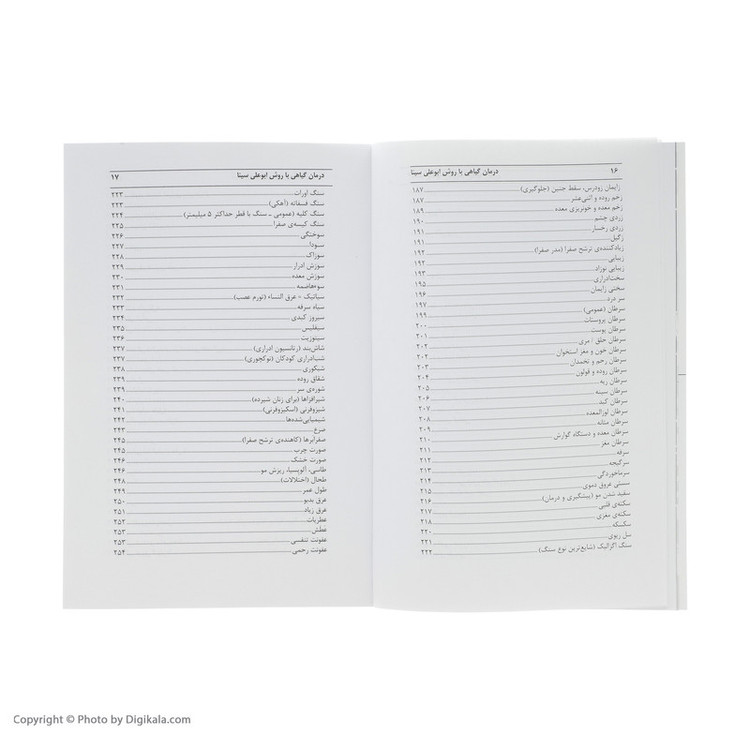 ۱۶ درمان گیاهی با روش ابوعلی سینا
زایمان زودرس، سقط جنین (جلوگیری) ۱۸۷
زخم روده و اثنی‌عشر ۱۸۷
زخم معده و خونریزی معده ۱۸۹
زردی چشم ۱۹۰
زردی رخسار ۱۹۱
زگیل ۱۹۱
زیادکننده‌ی ترشح صفرا (مدر صفرا) ۱۹۲
زیبایی ۱۹۲
زیبایی نوزاد ۱۹۳
سخت‌ادراری ۱۹۵
سختی زایمان ۱۹۶
سر درد ۱۹۷
سرطان (عمومی) ۱۹۹
سرطان پروستات ۲۰۰
سرطان پوست ۲۰۱
سرطان حلق / مری ۲۰۲
سرطان خون و مغز استخوان ۲۰۲
سرطان رحم و تخمدان ۲۰۳
سرطان روده و قولون ۲۰۴
سرطان ریه ۲۰۵
سرطان سینه ۲۰۶
سرطان کبد ۲۰۷
سرطان لوزالمعده ۲۰۸
سرطان مثانه ۲۰۹
سرطان معده و دستگاه گوارش ۲۱۰
سرطان مغز ۲۱۱
سرفه ۲۱۲
سرگیجه ۲۱۳
سرماخوردگی ۲۱۴
سستی عروق دموی ۲۱۵
سفید شدن مو (پیشگیری و درمان) ۲۱۶
سکته‌ی قلبی ۲۱۷
سکته‌ی مغزی ۲۱۸
سکسکه ۲۲۰
سل ریوی ۲۲۱
سنگ اگزالیک (شایع‌ترین نوع سنگ) ۲۲۲
درمان گیاهی با روش ابوعلی سینا ۱۷
سنگ اورات ۲۲۳
سنگ فسفاته (آهکی) ۲۲۳
سنگ کلیه (عمومی ـ سنگ با قطر حداکثر ۵ میلیمتر) ۲۲۴
سنگ کیسه‌ی صفرا ۲۲۵
سوختگی ۲۲۶
سودا ۲۲۷
سوزاک ۲۲۸
سوزش ادرار ۲۲۹
سوزش معده ۲۳۰
سوءهاضمه ۲۳۱
سیاتیک = عرق النساء (تورم عصب) ۲۳۲
سیاه سرفه ۲۳۳
سیروز کبدی ۲۳۴
سیفلیس ۲۳۵
سینوزیت ۲۳۶
شاش‌بند (رتانسیون ادراری) ۲۳۷
شب‌ادراری کودکان (توکچوری) ۲۳۷
شبکوری ۲۳۸
شقاق روده ۲۳۹
شوره‌ی سر ۲۳۹
شیرافزاها (برای زنان شیرده) ۲۴۰
شیزوفرنی (اسکیزوفرنی) ۲۴۱
شیمیایی‌شده‌ها ۲۴۲
صرع ۲۴۳
صفرابرها (کاهنده‌ی ترشح صفرا) ۲۴۵
صورت چرب ۲۴۵
صورت خشک ۲۴۶
طاسی، آلوپسیا، ریزش مو ۲۴۶
طحال (اختلالات) ۲۴۸
طول عمر ۲۴۹
عرق بدبو ۲۵۰
عرق زیاد ۲۵۱
عطریات ۲۵۲
عطش ۲۵۳
عفونت تنفسی ۲۵۳
عفونت رحمی ۲۵۴
Copyright © Photo by Digikala.com